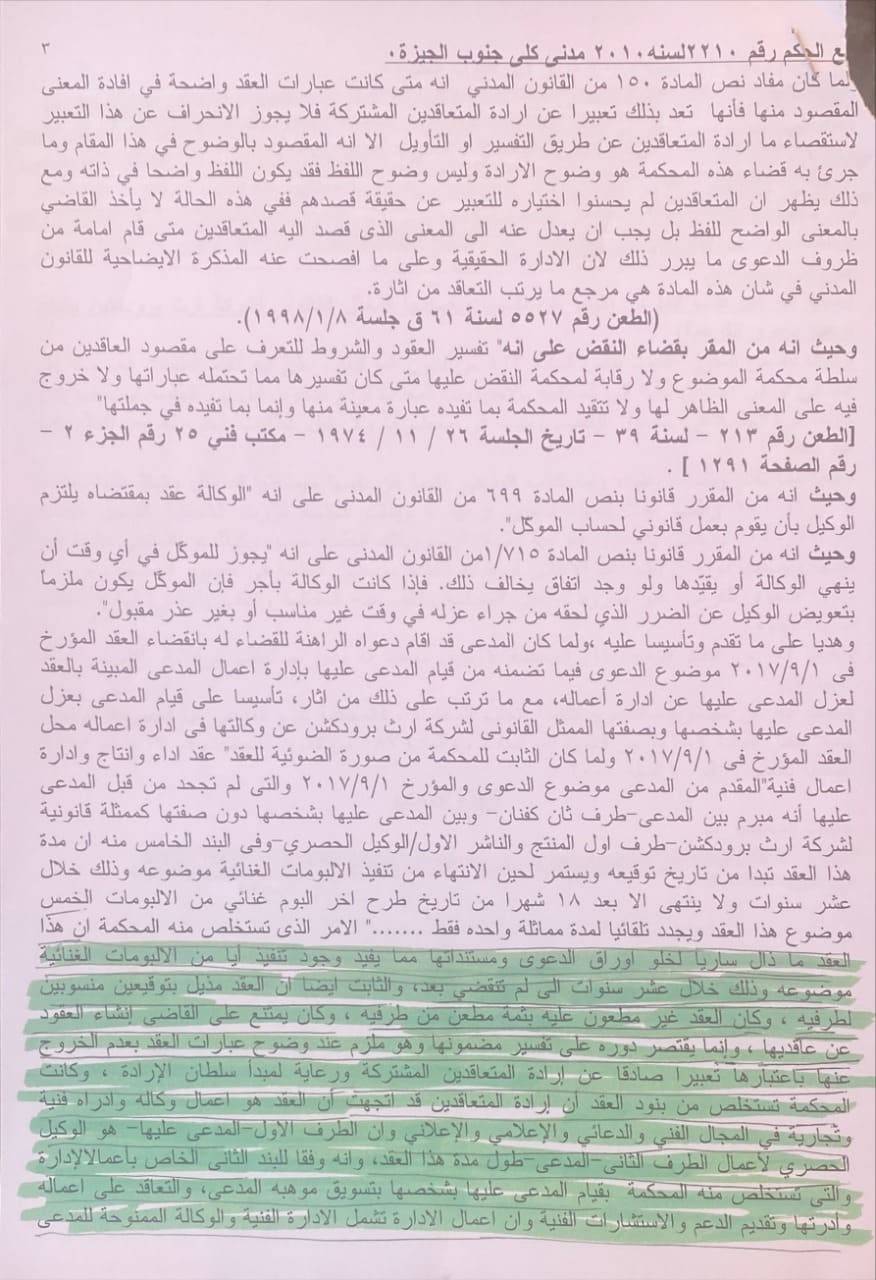 ع الحكم رقم ٢٢١٠ لسنه ٢٠١٠ مدنى كلى جنوب الجيزة٠
٣
لما كان مفاد نص المادة ١٥٠ من القانون المدني انه متى كانت عبارات العقد واضحة في افادة المعنى
المقصود منها فأنها تعد بذلك تعبيرا عن ارادة المتعاقدين المشتركة فلا يجوز الانحراف عن هذا التعبير
لاستقصاء ما ارادة المتعاقدين عن طريق التفسير او التأويل الا انه المقصود بالوضوح في هذا المقام وما
جرئ به قضاء هذه المحكمة هو وضوح الارادة وليس وضوح اللفظ فقد يكون اللفظ واضحا في ذاته ومع
ذلك يظهر ان المتعاقدين لم يحسنوا اختياره للتعبير عن حقيقة قصدهم ففي هذه الحالة لا يأخذ القاضي
بالمعنى الواضح للفظ بل يجب ان يعدل عنه الى المعنى الذى قصد اليه المتعاقدين متى قام امامة من
ظروف الدعوى ما يبرر ذلك لان الادارة الحقيقية وعلى ما افصحت عنه المذكرة الايضاحية للقانون
المدني في شان هذه المادة هي مرجع ما يرتب التعاقد من اثارة.
(الطعن رقم ٥٥٢٧ لسنة ٦١ ق جلسة ١٩٩٨/١/٨).
وحيث انه من المقر بقضاء النقض على انه" تفسير العقود والشروط للتعرف على مقصود العاقدين من
سلطة محكمة الموضوع ولا رقابة لمحكمة النقض عليها متى كان تفسيرها مما تحتمله عباراتها ولا خروج
فيه على المعنى الظاهر لها ولا تتقيد المحكمة بما تفيده عبارة معينة منها وإنما بما تفيده في جملتها"
[الطعن رقم ٢١٣ – لسنة ٣٩ – تاريخ الجلسة ٢٦ / ١١ / ١٩٧٤ – مكتب فني ٢٥ رقم الجزء ٢ –
رقم الصفحة ١٢٩١ ] .
وحيث انه من المقرر قانونا بنص المادة ٦٩٩ من القانون المدنى على انه "الوكالة عقد بمقتضاه يلتزم
الوكيل بأن يقوم بعمل قانوني لحساب الموكّل".
وحيث انه من المقرر قانونا بنص المادة ١/٧١٥من القانون المدنى على انه "يجوز للموكّل في أي وقت أن
ينهي الوكالة أو يقيّدها ولو وجد اتفاق يخالف ذلك. فإذا كانت الوكالة بأجر فإن الموكّل يكون ملزماً
بتعويض الوكيل عن الضرر الذي لحقه من جراء عزله في وقت غير مناسب أو بغير عذر مقبول".
وهديا على ما تقدم وتأسيسا عليه ،ولما كان المدعى قد اقام دعواه الراهنة للقضاء له بانقضاء العقد المؤرخ
فى ٢٠١٧/٩/١ موضوع الدعوى فيما تضمنه من قيام المدعى عليها بإدارة اعمال المدعى المبينة بالعقد
لعزل المدعى عليها عن ادارة أعماله، مع ما ترتب على ذلك من اثار، تأسيسا على قيام المدعى بعزل
المدعى عليها بشخصها وبصفتها الممثل القانونى لشركة ارث برودكشن عن وكالتها فى ادارة اعماله محل
العقد المؤرخ فى ٢٠١٧/٩/١ ولما كان الثابت للمحكمة من صورة الضوئية للعقد" عقد اداء وانتاج وادارة
اعمال فنية"المقدم من المدعى موضوع الدعوى والمؤرخ ٢٠١٧/٩/١ والتى لم تجحد من قبل المدعى
عليها أنه مبرم بين المدعى–طرف ثان كفنان– وبين المدعى عليها بشخصها دون صفتها كممثلة قانونية
لشركة ارث برودكشن–طرف اول المنتج والناشر الاول/الوكيل الحصري–وفى البند الخامس منه ان مدة
هذا العقد تبدا من تاريخ توقيعه ويستمر لحين الانتهاء من تنفيذ الالبومات الغنائية موضوعه وذلك خلال
عشر سنوات ولا ينتهى الا بعد ١٨ شهرا من تاريخ طرح اخر البوم غنائي من الالبومات الخمس
موضوع هذا العقد ويجدد تلقائيا لمدة مماثلة واحده فقط ......." الامر الذى تستخلص منه المحكمة ان هذا
العقد ما ذال ساريا لخلو اوراق الدعوى ومستنداتها مما يفيد وجود تنفيذ أيا من الالبومات الغنائية
موضوعه وذلك خلال عشر سنوات الى لم تنقضي بعد، والثابت ايضا ان العقد مذيل بتوقيعين منسوبين
لطرفيه ، وكان العقد غير مطعون عليه بثمة مطعن من طرفيه ، وكان يمتنع على القاضى إنشاء العقود
عن عاقديها ، وإنما يقتصر دوره على تفسير مضمونها وهو ملزم عند وضوح عبارات العقد بعدم الخروج
عنها باعتبارها تعبيرا صادقا عن إرادة المتعاقدين المشتركة ورعاية لمبدأ سلطان الإرادة ، وكانت
المحكمة تستخلص من بنود العقد أن إرادة المتعاقدين قد اتجهت أن العقد هو اعمال وكاله وادراه فنية
وتجارية في المجال الفني والدعائي والإعلامي والإعلاني وان الطرف الاول–المدعى عليها– هو الوكيل
الحصري لأعمال الطرف الثانى–المدعى–طول مدة هذا العقد، وانه وفقا للبند الثانى الخاص بأعمالالإدارة
والتى تستخلص منه المحكمة بقيام المدعى عليها بشخصها بتسويق موهبه المدعى، والتعاقد على اعماله
وأدرتها وتقديم الدعم والاستشارات الفنية وان اعمال الادارة تشمل الادارة الفنية والوكالة الممنوحة للمدعى